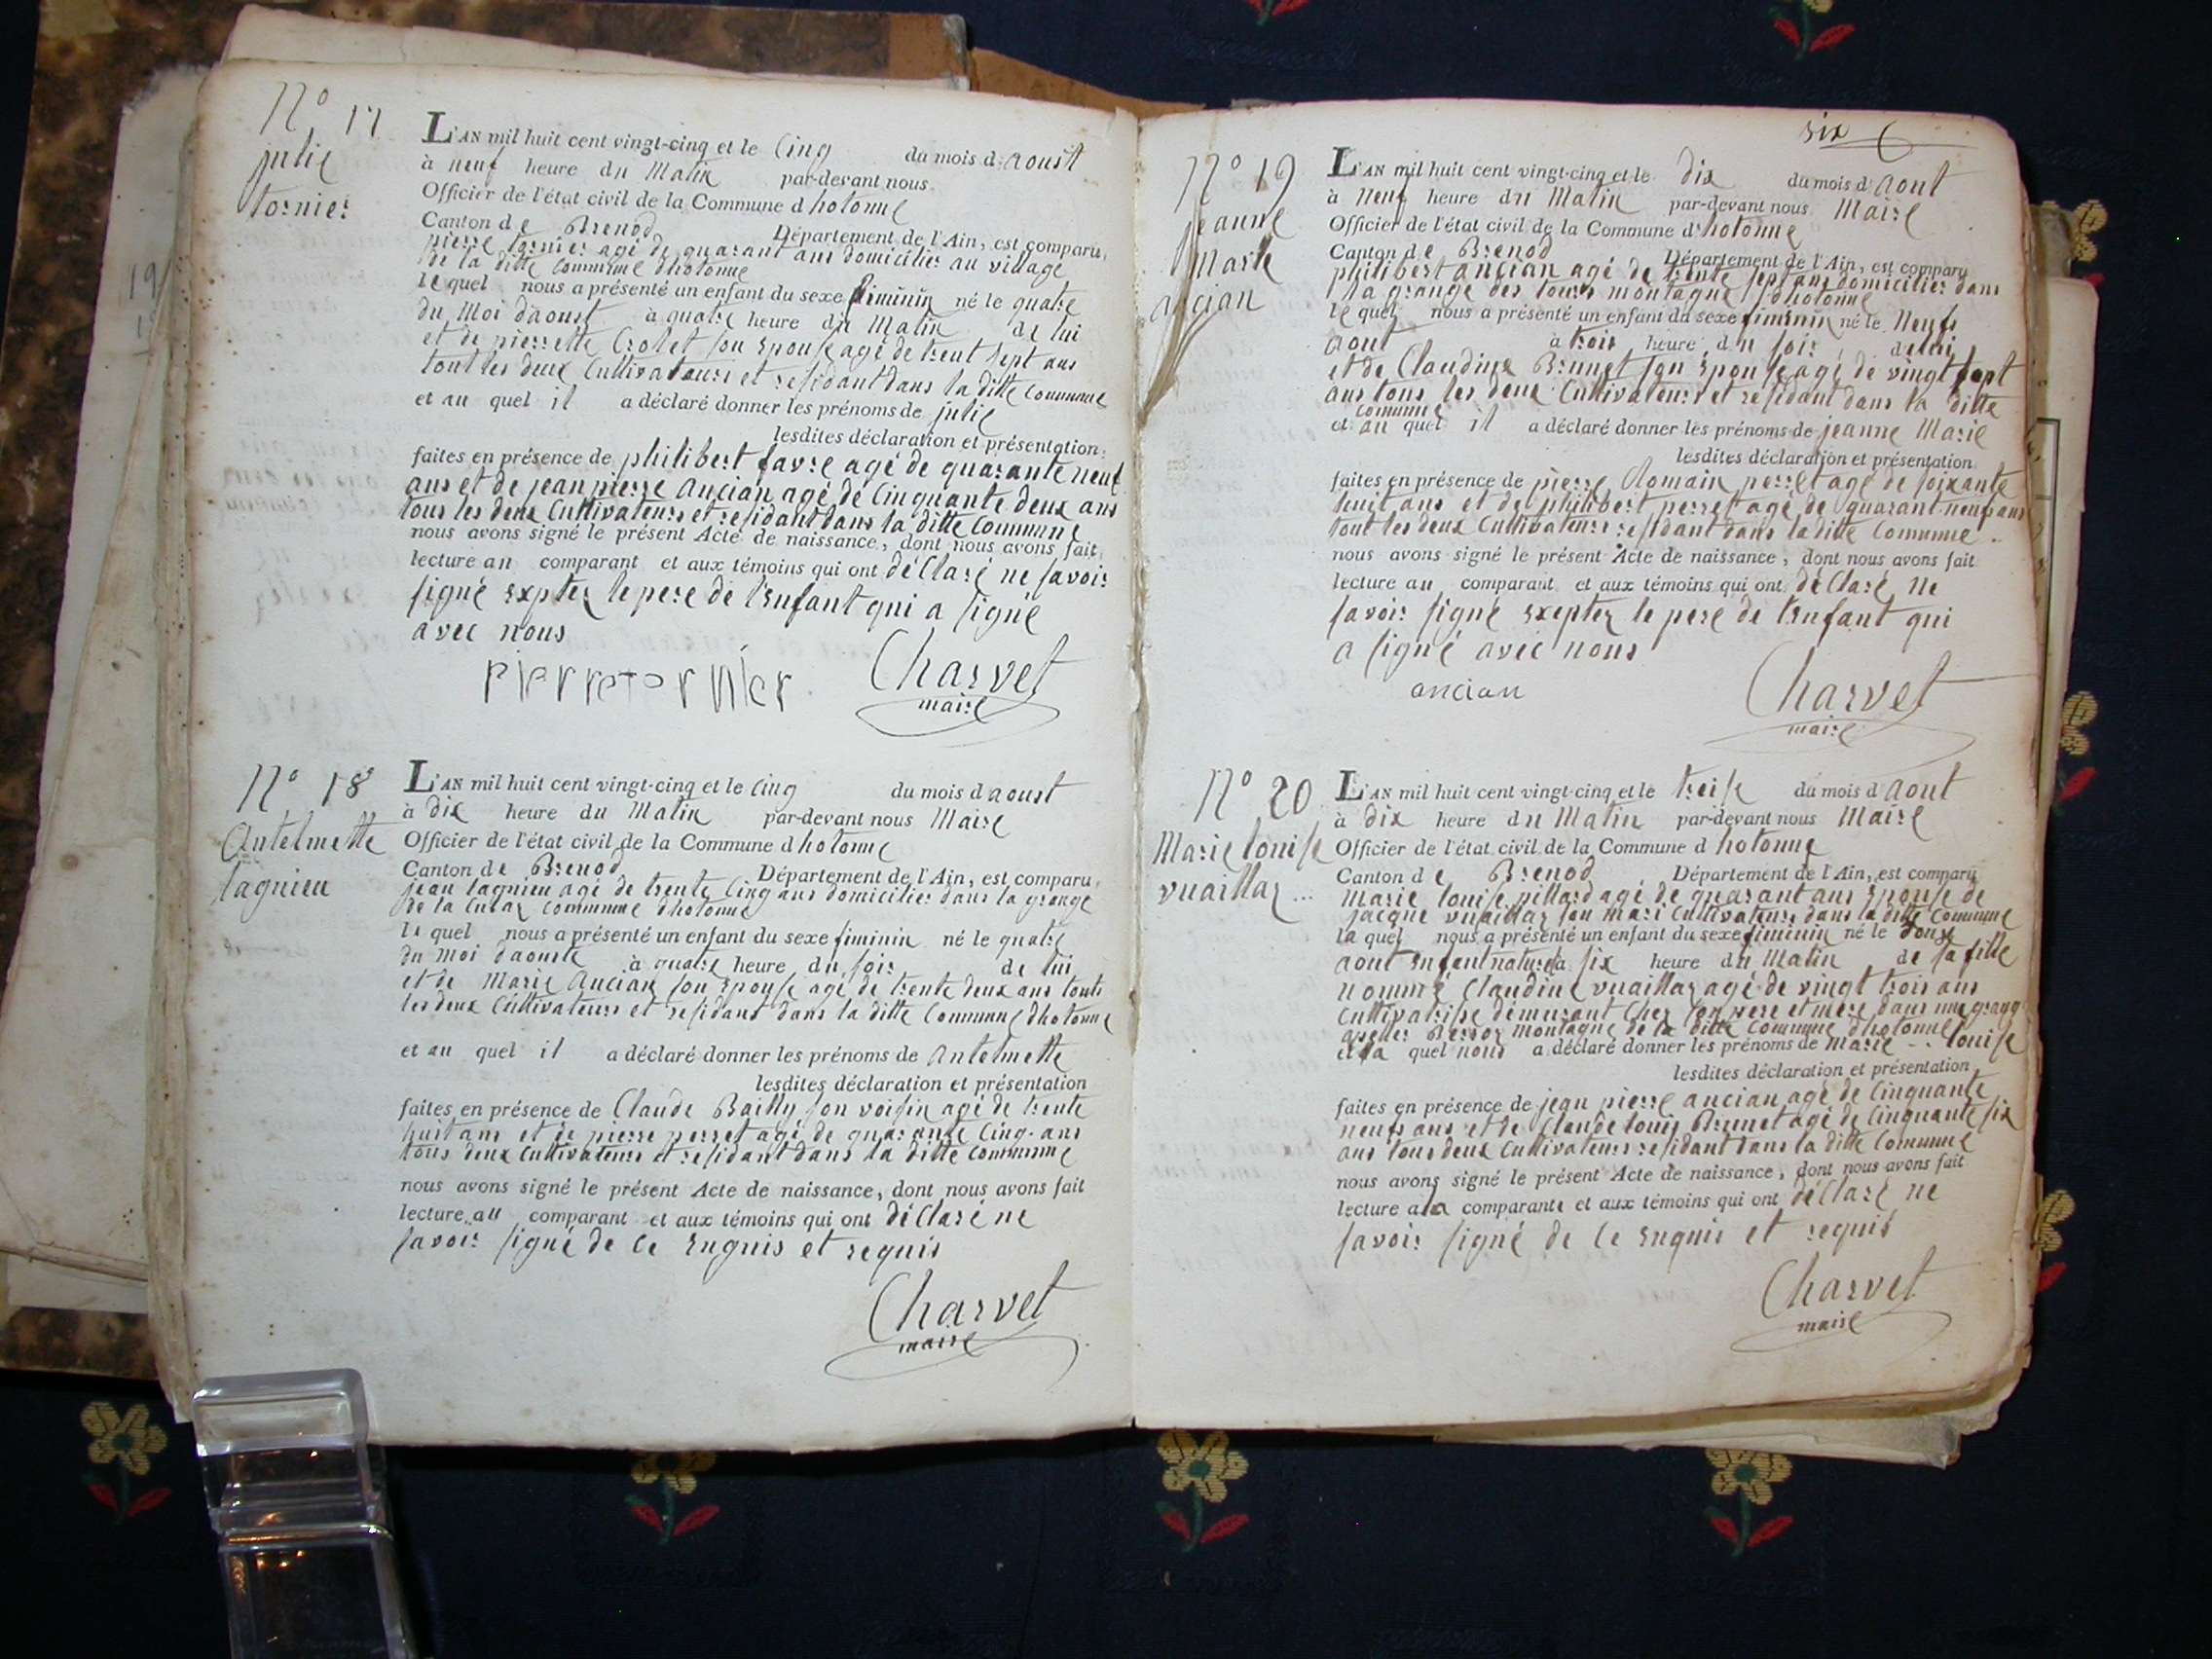 N° 17
julie
tornier
L'AN mil huit cent vingt-cinq et le Cinq du mois d aoust
à neuf heure du Matin par-devant nous
Officier de l'état civil de la Commune d hotonne
Canton de Brenod Département de l'Ain, est comparu,
pierre tornier agé de quarant ans domicilier au village
de la ditte Commune dhotonne
lequel nous a présenté un enfant du sexe feminin né le quatre
du Moi daoust à quatre heure du Matin de lui
et de pierrette Crolet son Epouse agé de trent sept ans
tout les deux Cultivateurs et residant dans la ditte Commune
et au quel il a déclaré donner les prénoms de julie
lesdites déclaration et présentation
faites en présence de philibert favre agé de quarante neuf
ans et de jean pierre ancian agé de Cinquante deux ans
tous les deux Cultivateurs et residant dans la ditte Commune
nous avons signé le présent Acte de naissance, dont nous avons fait
lecture au comparant et aux témoins qui ont déClaré ne savoir
signé Expter le pere de l'Enfant qui a signé
avec nous
Pierre tornier Charvet
maire
N° 18
Antelmette
lagnieu
L'AN mil huit cent vingt-cinq et le Cinq du mois d aoust
à dix heure du Matin par-devant nous Maire
Officier de l'état civil de la Commune d hotonne
Canton de Brenod Département de l'Ain, est comparu,
jean lagnieu agé de trente Cinq ans domicilier dans la grange
de la Commune dhotonne
le quel nous a présenté un enfant du sexe feminin né le quatre
du moi daouste à quatre heure du soir de lui
et de Marie Ancian son Epouse agé de trente deux ans touts
les deux Cultivateurs et residant dans la ditte Commune dhotonne
et au quel il a déclaré donner les prénoms de antelmette
lesdites déclaration et présentation
faites en présence de Claude Bailly son voisin agé de trente
huit ans et de pierre perret agé de quarante Cinq ans
tous deux Cultivateurs et residant dans la ditte Commune
nous avons signé le présent Acte de naissance, dont nous avons fait
lecture au comparant et aux témoins qui ont déClaré ne
savoir signé de Ce Enquis et requis
Charvet
maire
six 6
N° 19
jeanne
Marie
ancian
L'AN mil huit cent vingt-cinq et le dix du mois d aout
à neuf heure du Matin par-devant nous Maire
Officier de l'état civil de la Commune d'hotonne
Canton de Brenod Département de l'Ain, est comparu
philibert ancian agé de trente sept ans domicilier dans
la grange des tours montagne dhotonne
le quel nous a présenté un enfant du sexe feminin né le Neufs
aout à trois heure du soir de lui
et de Claudine Brunet son Epouse agé de vingt sept
ans tous les deux Cultivateurs et residant dans la ditte
Commune
et au quel il a déclaré donner les prénoms de jeanne Marie
lesdites déclaration et présentation
faites en présence de pierre Romain perret agé de soixante
huit ans et de philibert perret agé de quarant neuf ans
tout les deux Cultivateurs residant dans la ditte Commune
nous avons signé le présent Acte de naissance, dont nous avons fait
lecture au comparant et aux témoins qui ont déClaré ne
savoir signé Exepter le pere de l'Enfant qui
a signé avec nous
ancian Charvet
maire
N° 20
Marie louise
vuaillaz ...
L'AN mil huit cent vingt-cinq et le treise du mois d aout
à dix heure du Matin par-devant nous Maire
Officier de l'état civil de la Commune d hotonne
Canton de Brenod Département de l'Ain, est comparu
Marie louise pillard agé de quarant ans Epouse de
jacque vuaillaz son mari Cultivateurs dans la ditte Commune
la quel nous a présenté un enfant du sexe feminin né le douse
aout Enfant naturel à six heure du Matin de sa fille
nommé Claudine vuaillaz agé de vingt trois ans
Cultivatrise demurant Chez son pere et mere dans une grang
apeller montagne de la ditte Commune dhotonne
et la quel nous a déclaré donner les prénoms de marie -- louise
lesdites déclaration et présentation
faites en présence de jean pierre ancian agé de Cinquante
neufs ans et de Claude louis Brunet agé de Cinquante six
ans tous deux Cultivateurs residant dans la ditte Commune
nous avons signé le présent Acte de naissance, dont nous avons fait
lecture a la comparante et aux témoins qui ont déClaré ne
savoir signé de Ce Enquis et requis
Charvet
maire